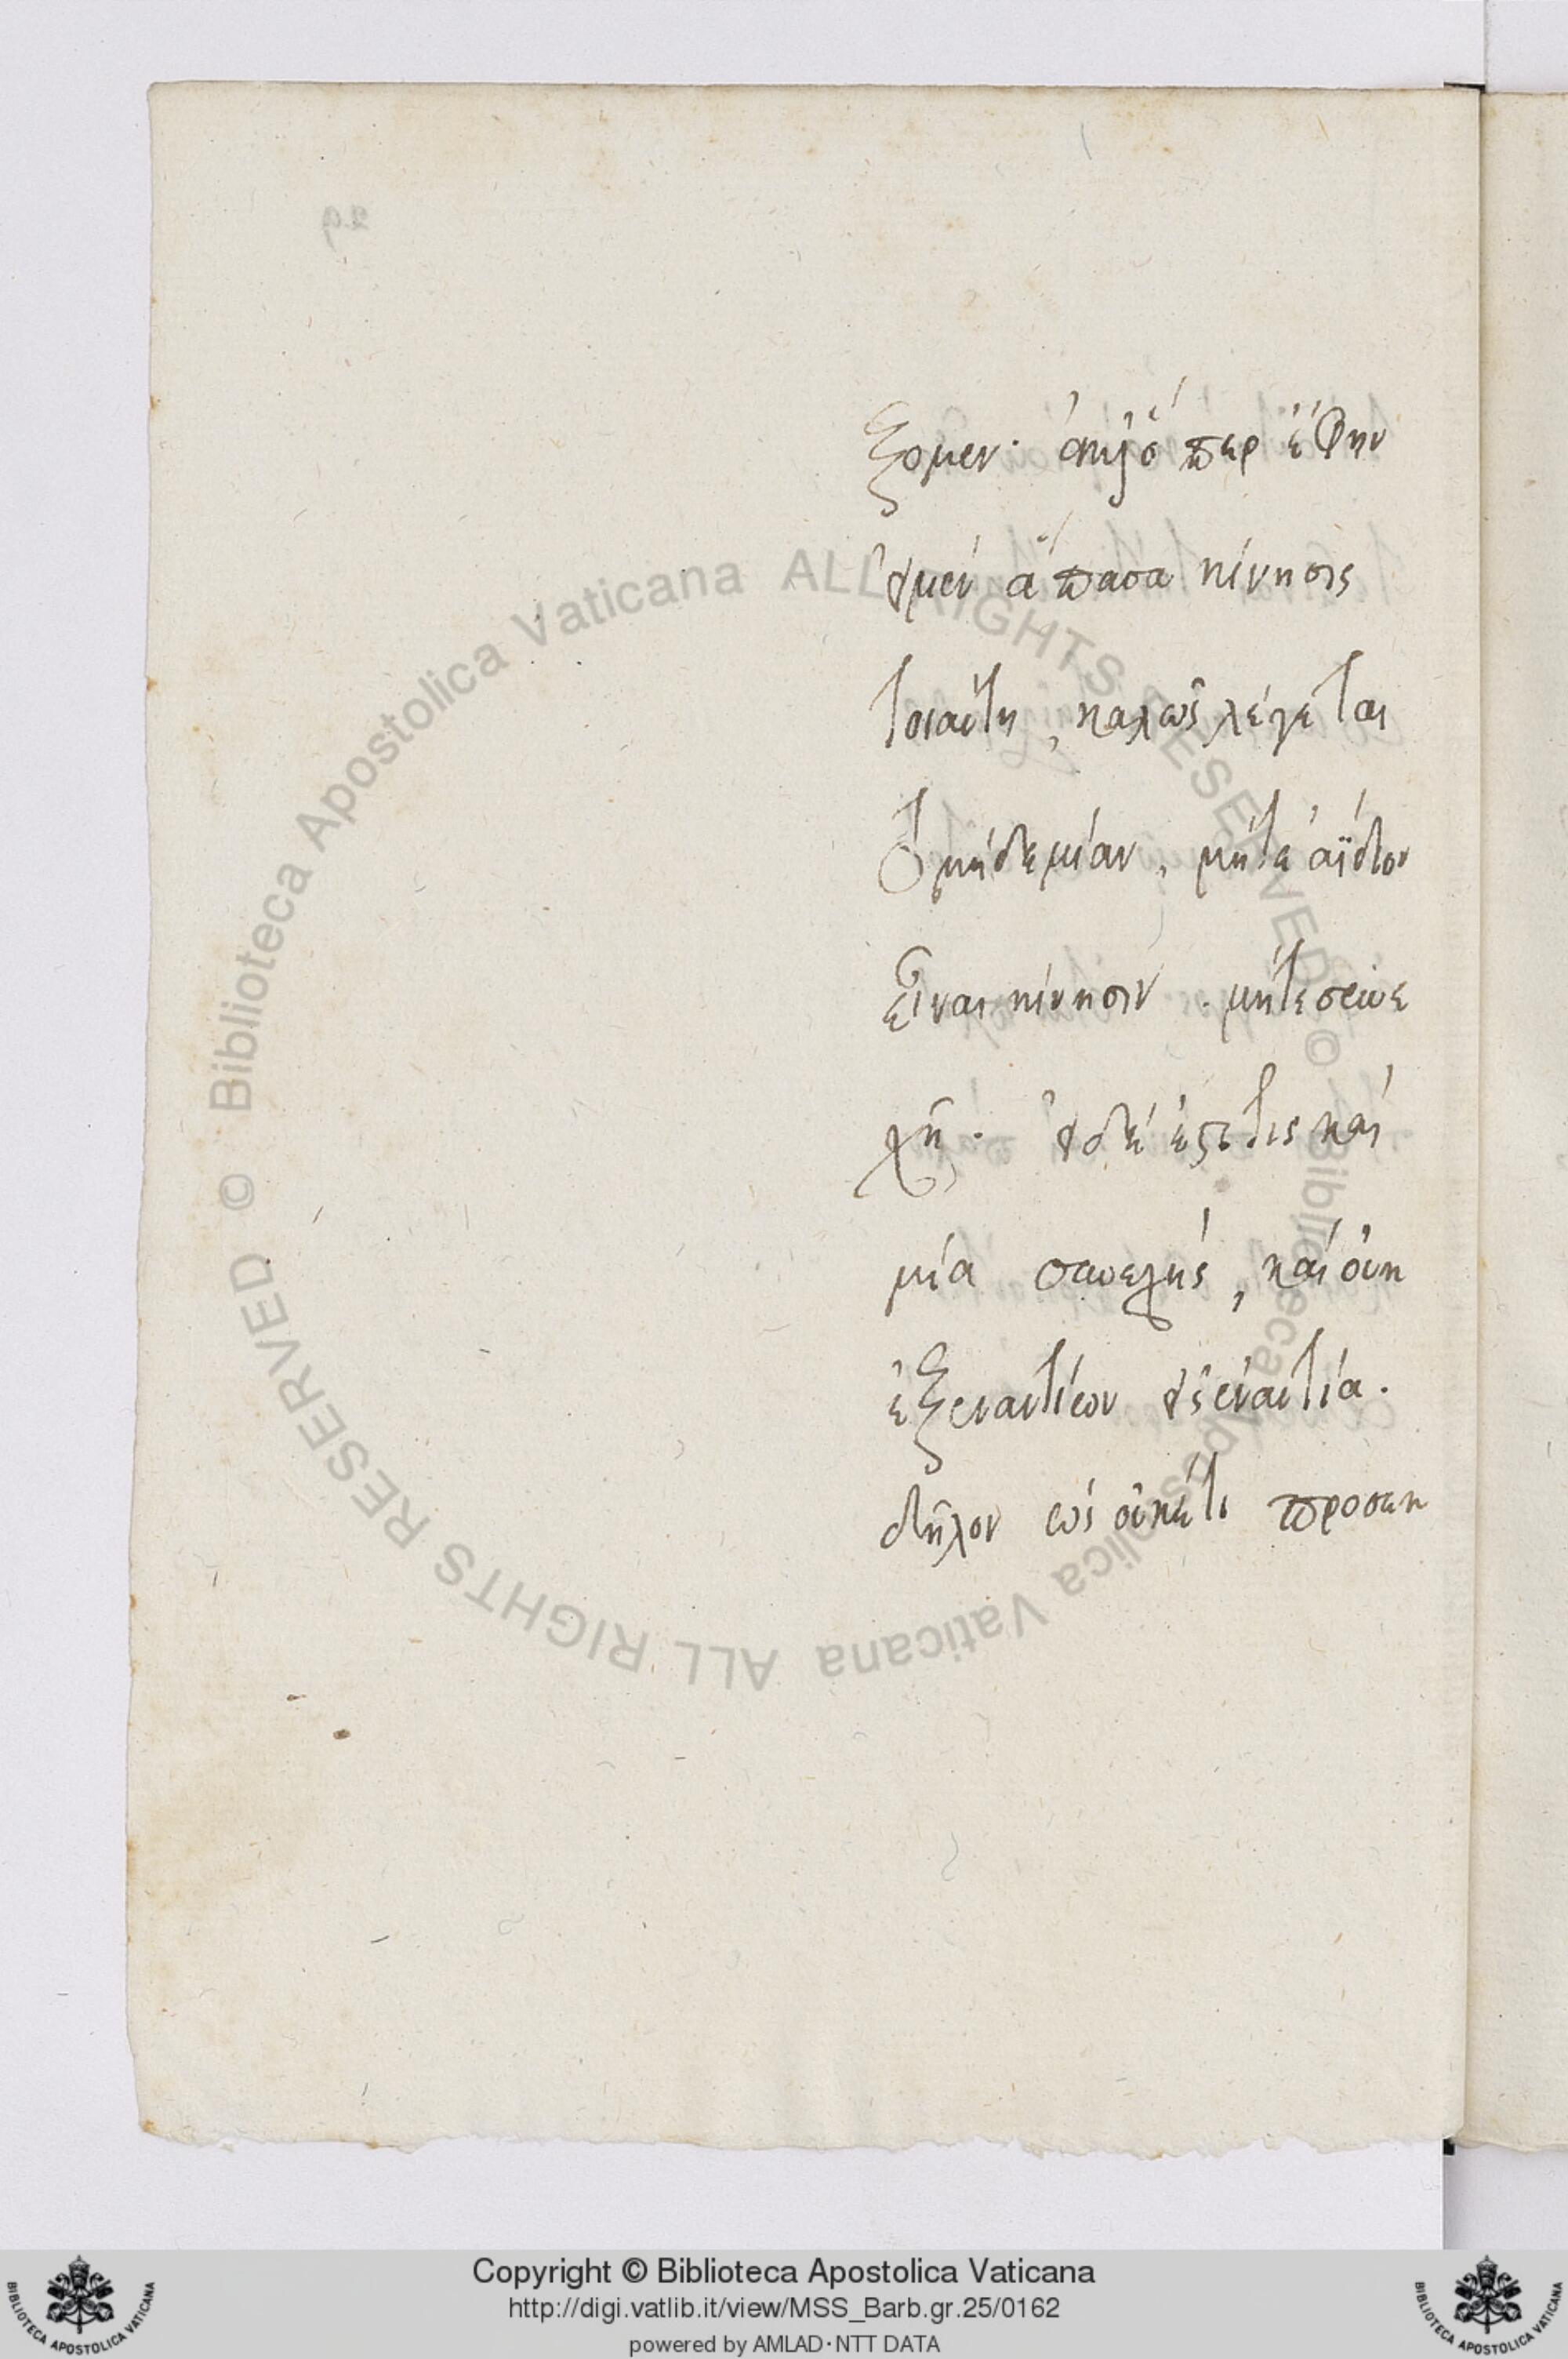 29
ξομεν· ἀλλ' ὅπερ ἔφην
εἰ μὲν ἅπασα κίνησις
τοιαύτη, καλῶς λέγεται
τὸ μηδεμίαν, μήτε ἀΐδιον
εἶναι κίνησιν. μήτε συνε
χῆ. εἰ δέ ἐστί τις καὶ
μία συνεχής, καὶ οὐκ
ἐξ ἐναντίων εἰς ἐναντία.
δῆλον ὡς οὐκέτι προσεκ
© Biblioteca Apostolica Vaticana ALL RIGHTS RESERVED
© Biblioteca Apostolica Vaticana ALL RIGHTS RESERVED
Copyright © Biblioteca Apostolica Vaticana
http://digi.vatlib.it/view/MSS_Barb.gr.25/0162
powered by AMLAD·NTT DATA
BIBLIOTECA APOSTOLICA VATICANA
BIBLIOTECA APOSTOLICA VATICANA